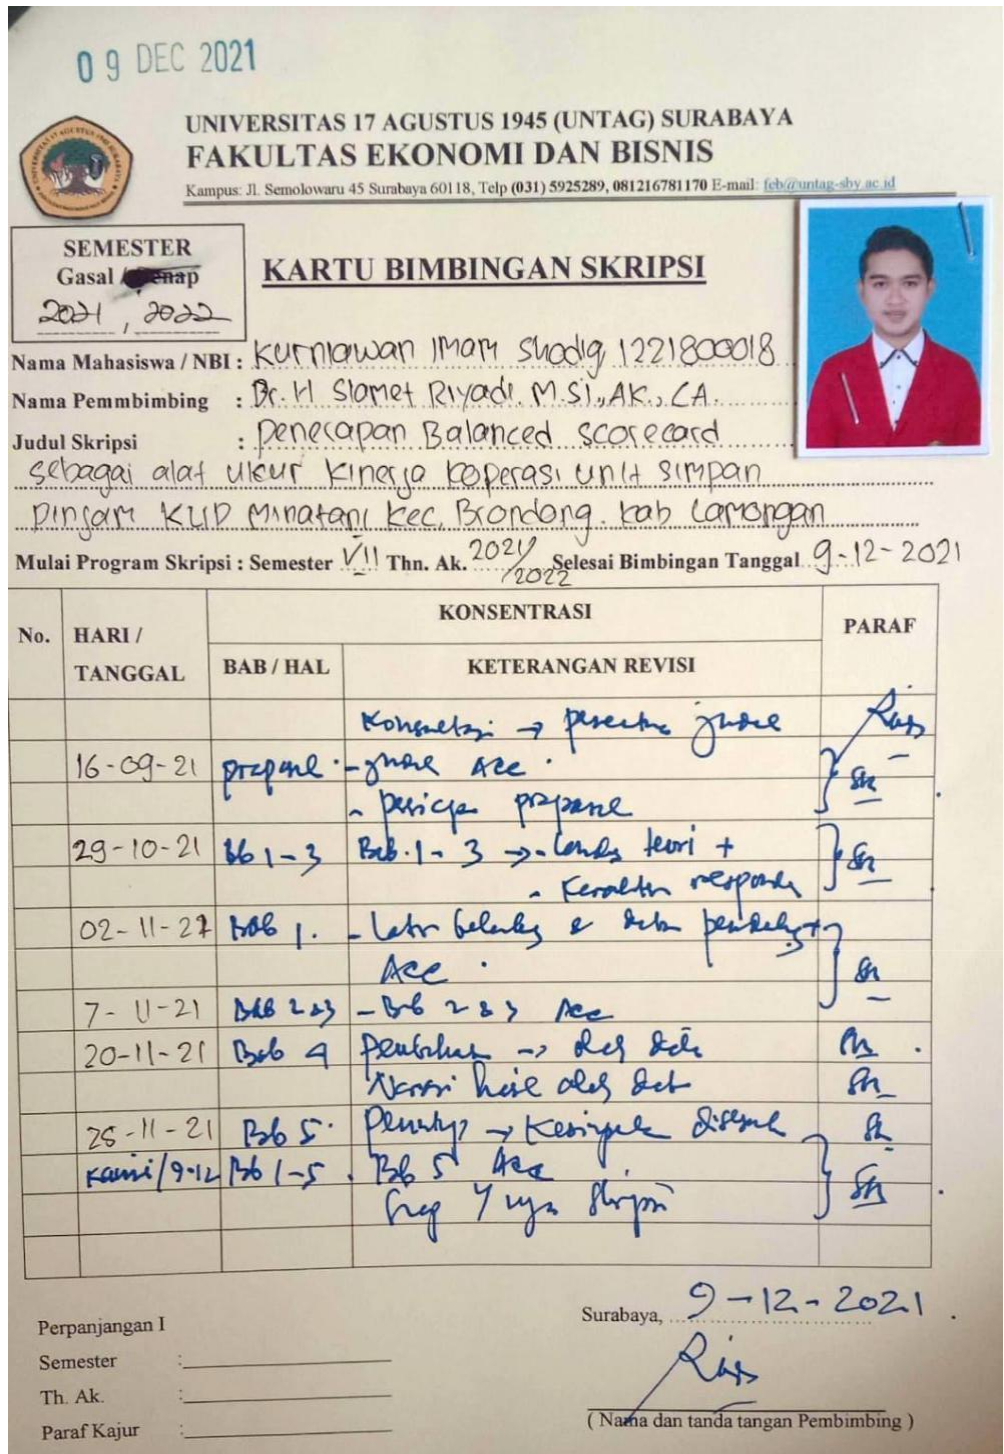 09 DEC 2021
UNIVERSITAS 17 AGUSTUS 1945 (UNTAG) SURABAYA
FAKULTAS EKONOMI DAN BISNIS
Kampus: Jl. Semolowaru 45 Surabaya 60118, Telp (031) 5925289, 081216781170 E-mail: feb@untag-sby.ac.id
SEMESTER
Gasal / Genap
2021, 2022
KARTU BIMBINGAN SKRIPSI
Nama Mahasiswa / NBI : Kurniawan Imam Shodiq 1221800018
Nama Pemmbimbing : Dr. H Slamet Riyadi. M.Si., AK., CA.
Judul Skripsi : Penerapan Balanced scorecard
sebagai alat ukur kinerja koperasi unit simpan
pinjam KUD Minatani Kec. Brondong. kab Lamongan
Mulai Program Skripsi : Semester VII Thn. Ak. 2021/2022 Selesai Bimbingan Tanggal 9-12-2021
No. HARI / TANGGAL KONSENTRASI PARAF
BAB / HAL KETERANGAN REVISI
Konsultasi →
16-09-21 - Acc
29-10-21 Bb 1-3 Bab. 1-3 → teori +
-
02-11-21 Bab 1. - Latar belakang
Acc .
7-11-21 Bab 2 & 3 - Bab 2 & 3 Acc
20-11-21 Bab 4 →
Narasi hasil olah
-11-21 Bab 5. Penutup → Kesimpulan
Kamis/9-12 Bb 1-5 . Bb 5 Acc
Perpanjangan I
Semester :
Th. Ak. :
Paraf Kajur :
Surabaya, 9-12-2021
( Nama dan tanda tangan Pembimbing )